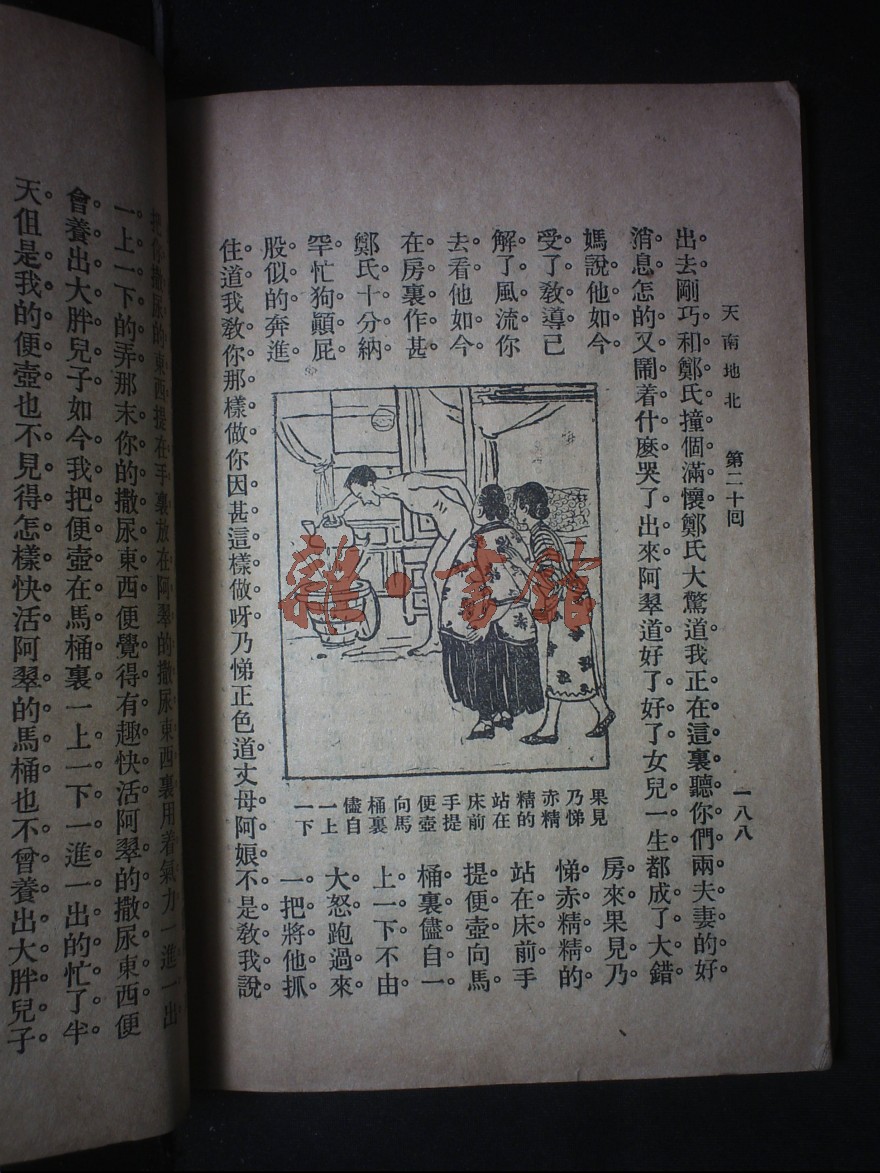 天南地北 第二十回 一八八
出去剛巧和鄭氏撞個滿懷。鄭氏大驚道。我正在這裏聽你們兩夫妻的好
消息。怎的又鬧着什麼哭了出來。阿翠道。好了好了。女兒一生都成了大錯。
媽說他如今
受了教導。已
解了風流。你
去看他如今
在房裏作甚。
鄭氏十分納
罕。忙狗顛屁
股似的奔進
房來。果見乃
悌赤精精的
站在床前。手
提便壺。向馬
桶裏儘自一
上一下。不由
大怒。跑過來
一把將他抓
住道。我敎你那樣做。你因甚這樣做呀。乃悌正色道。丈母阿娘。不是敎我說。
果見
乃悌
赤精
精的
站在
床前
手提
便壺
向馬
桶裏
儘自
一上
一下
雜·書館
把你撒尿的東西提在手裏。放在阿翠的撒尿東西裏。用着氣力一進一出。
一上一下的弄。那末你的撒尿東西便覺得有趣快活。阿翠的撒尿東西便
會養出大胖兒子。如今我把便壺在馬桶裏一上一下一進一出的忙了半
天。但是我的便壺也不見得怎樣快活。阿翠的馬桶也不曾養出大胖兒子。